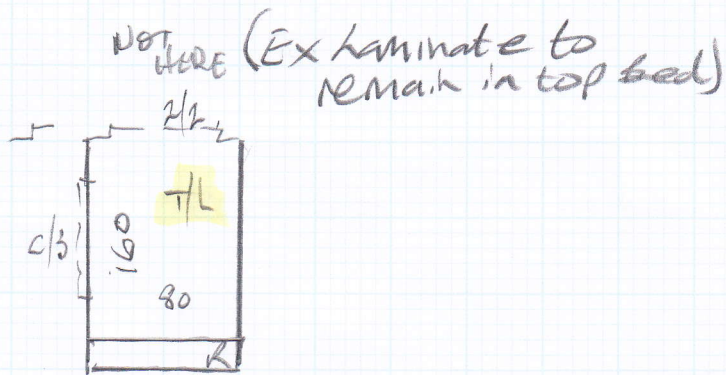 NOT HERE (Ex Laminate to
remain in top bed)
2/2
T/L
C/3
160
80
R